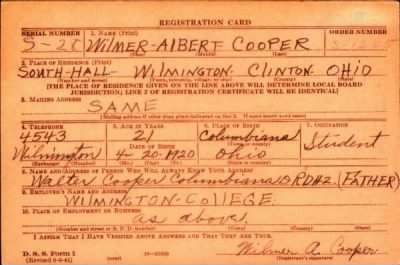 REGISTRATION CARD
SERIAL NUMBER 1. NAME (Print) ORDER NUMBER
S-28 WILMER-ALBERT COOPER
(First) (Middle) (Last)
2. PLACE OF RESIDENCE (Print)
SOUTH-HALL- WILMINGTON- CLINTON- OHIO
[THE PLACE OF RESIDENCE GIVEN ON THE LINE ABOVE WILL DETERMINE LOCAL BOARD
JURISDICTION; LINE 2 OF REGISTRATION CERTIFICATE WILL BE IDENTICAL]
3. MAILING ADDRESS
SAME
[Mailing address if other than place indicated on line 2. If same insert word same]
4. TELEPHONE 5. AGE IN YEARS 6. PLACE OF BIRTH 7. OCCUPATION
4543 21 Columbiana Student
DATE OF BIRTH (Town or county)
Wilmington 4-20-1920 Ohio
(Exchange) (Number) (Mo.) (Day) (Yr.) (State or country)
8. NAME AND ADDRESS OF PERSON WHO WILL ALWAYS KNOW YOUR ADDRESS
Walter J Cooper Columbiana O RD#2. (FATHER)
9. EMPLOYER'S NAME AND ADDRESS
WILMINGTON-COLLEGE.
10. PLACE OF EMPLOYMENT OR BUSINESS
as above
(Number and street or R. F. D. number) (Town) (County) (State)
I AFFIRM THAT I HAVE VERIFIED ABOVE ANSWERS AND THAT THEY ARE TRUE.
D. S. S. Form 1 Wilmer A. Cooper
(Revised 6-9-41) (Registrant's signature)